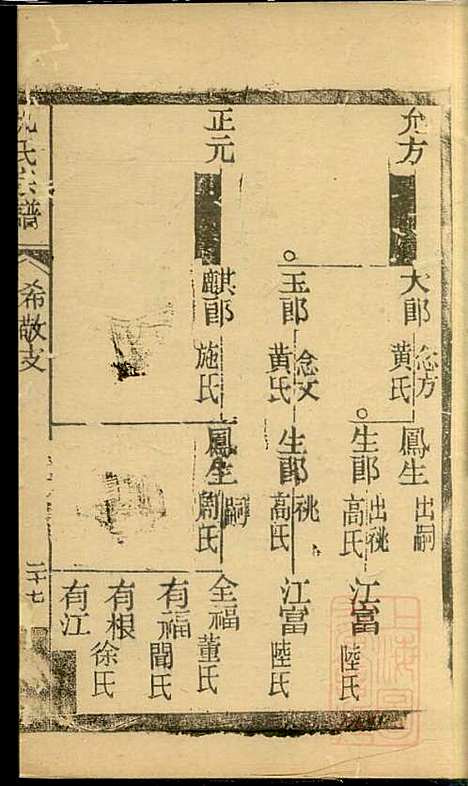 允方
大郎 念方
黄氏
鳳生 出嗣
生郎 出祧
高氏
江富
陸氏
玉郎 念文
黄氏
生郎 祧
高氏
江富
陸氏
正元
麒郎
施氏
鳳生 嗣
氏
全福
董氏
有福
聞氏
有根
徐氏
有江
氏宗譜
希敬支
二十七